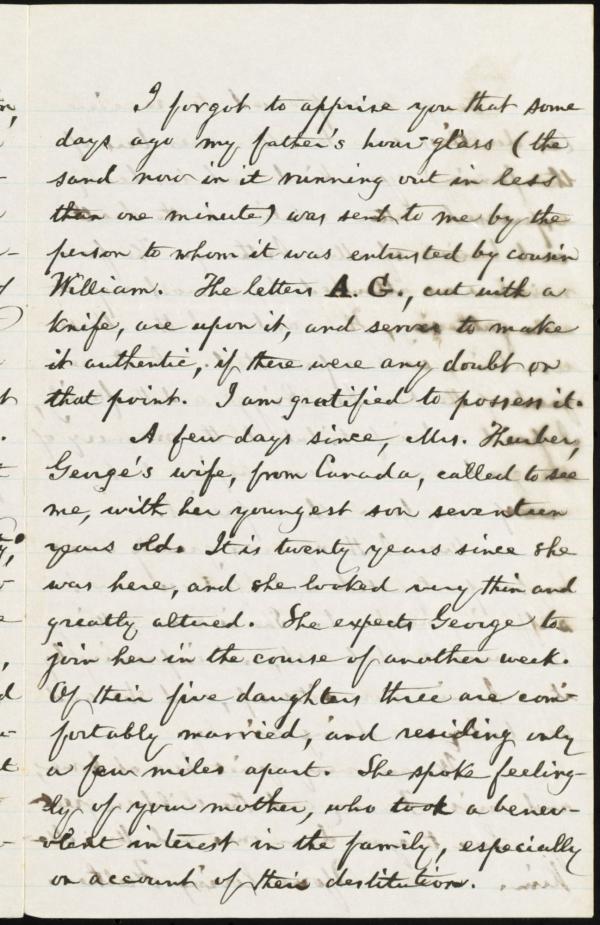 I forgot to apprise you that some
days ago my father's hour-glass (the
sand now in it running out in less
than one minute) was sent to me by the
person to whom it was entrusted by cousin
William. The letters A. G., cut with a
knife, are upon it, and serve to make
it authentic, if there were any doubt on
that point. I am gratified to possess it.
A few days since, Mrs. Thurber,
George's wife, from Canada, called to see
me, with her youngest son seventeen
years old. It is twenty years since she
was here, and she looked very thin and
greatly altered. She expects George to
join her in the course of another week.
Of their five daughters three are com-
fortably married, and residing only
a few miles apart. She spoke feeling-
ly of your mother, who took a benev-
olent interest in the family, especially
on account of their destitution.